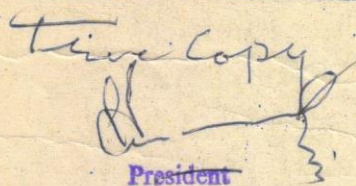 True Copy
President